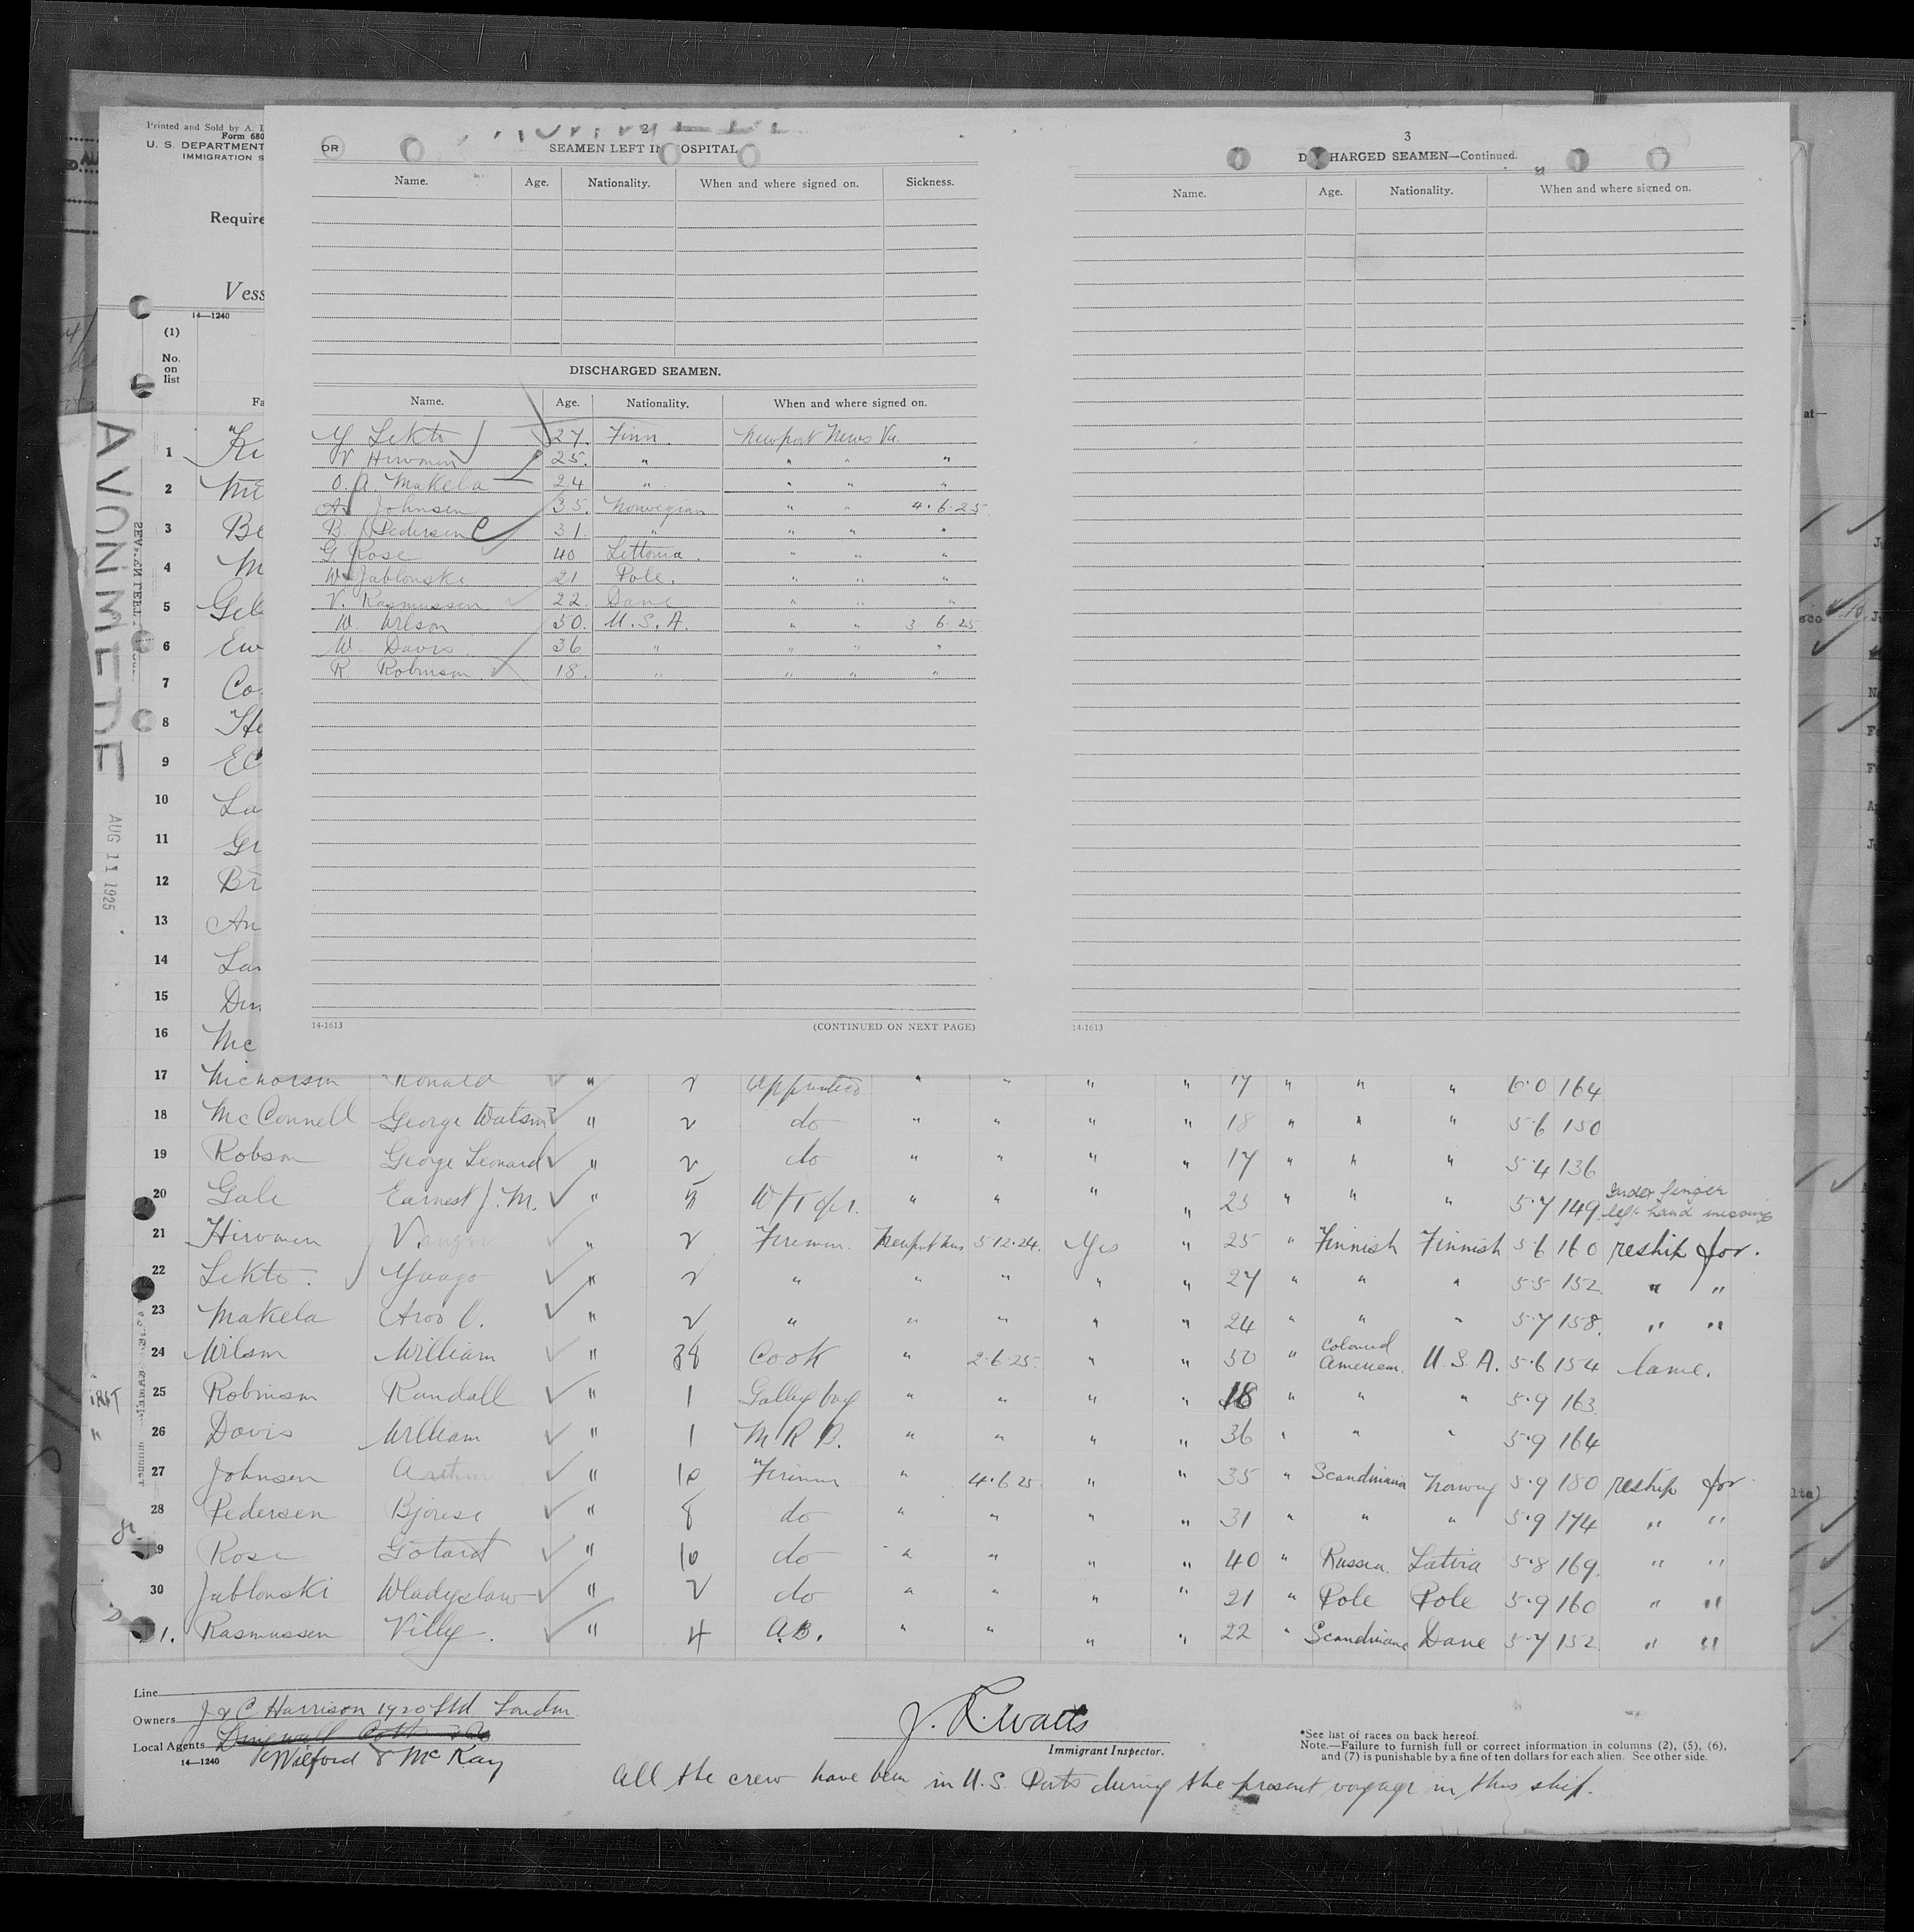 Printed and Sold by A. 
Form 680
U. S. DEPARTMENT
IMMIGRATION S
Require
Vess
14—1240
(1)
No.
on
list
Fa
AVONMEDE
AUG 11 1925
OR
2
SEAMEN LEFT IN HOSPITAL
Name. Age. Nationality. When and where signed on. Sickness.
DISCHARGED SEAMEN.
Name. Age. Nationality. When and where signed on.
Y Lekto 27. Finn. Newport News Va.
V Hirvonen 25. " " " "
O. A. Makela 24 " " " "
A. Johnsen 35. Norwegian " " 4.6.25
B. Pedersen 31. " " " "
G Rose 40 Lettonia. " " "
W. Jablonski 21 Pole. " " "
V. Rasmussen 22. Dane " " "
W. Wilson 50. U.S.A. " " 3 6 25
W. Davis 36 " " " "
R. Robinson 18. " " " "
14-1613 (CONTINUED ON NEXT PAGE)
3
DISCHARGED SEAMEN—Continued.
Name. Age. Nationality. When and where signed on.
14-1613
1 Ki
2 Mi
3 Be
4 M
5 Geb
6 Ew
7 Co
8 He
9 El
10 La
11 Gr
12 Br
13 An
14 Lar
15 Din
16 Mc
17 Nicholson Ronald " 2 Apprentice " " " " 17 " " " 6.0 164
18 McConnell George Watson " 2 do " " " " 18 " " " 5.6 150
19 Robson George Leonard " 2 do " " " " 17 " " " 5.4 136
20 Gale Earnest J. M. " W/T opr. " " " " 25 " " " 5.7 149 Index finger left hand missing
21 Hirvonen V. " 2 Fireman. Newport News 5.12.24. Yes " 25 " Finnish Finnish 5.6 160 reship for.
22 Lekto. Yvago " 2 " " " " " 27 " " " 5.5 152. " "
23 Makela " 2 " " " " " 24 " " " 5.7 158. " "
24 Wilson William " 38 Cook " 2.6.25. " " 50 " Colored American. U.S.A. 5.6 154 lame.
25 Robinson Randall " 1 Galley boy " " " " 18 " " " 5.9 163.
26 Davis William " 1 M.R.S. " " " " 36 " " " 5.9 164
27 Johnsen Arthur " 10 Fireman " 4.6.25. " " 35 " Scandinavia Norway 5.9 180 reship for
28 Pedersen Bjorese " 8 do " " " " 31 " " " 5.9 174 " "
29 Rose Gotard " 10 do " " " " 40 " Russia. Latvia 5.8 169. " "
30 Jablonski Wladyslaw " 2 do " " " " 21 " Pole Pole 5.9 160 " "
31. Rasmussen Villy. " 4 A.B. " " " " 22 " Scandinave Dane 5.7 152. " "
Line
Owners J & C Harrison 1920 Ltd London.
Local Agents
Wilford & McKay
14—1240
J. R. Watts
Immigrant Inspector.
*See list of races on back hereof.
Note.—Failure to furnish full or correct information in columns (2), (5), (6),
and (7) is punishable by a fine of ten dollars for each alien. See other side.
All the crew have been in U.S. Ports during the present voyage in this ship.